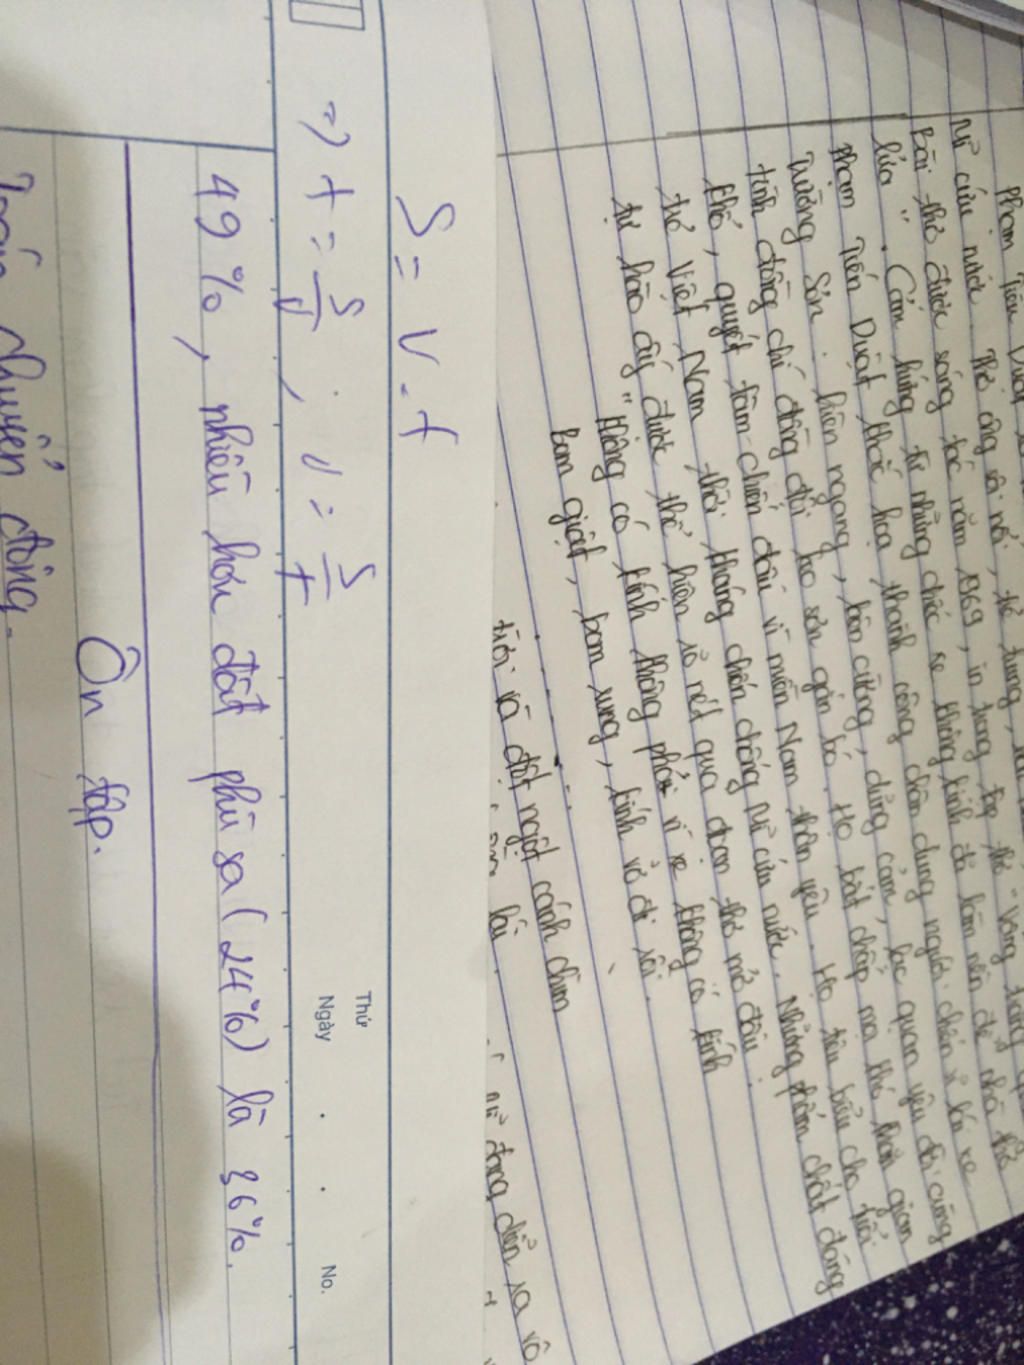 Phạm Tiến Duật
Mĩ cứu nước. Thơ ông sôi nổi, trẻ trung,
Bài thơ được sáng tác năm 1969, in trong tập thơ "Vầng trăng quầng
lửa". Cảm hứng từ những chiếc xe không kính đã làm nên để nhà thơ
Phạm Tiến Duật khắc hoạ thành công chân dung người chiến sĩ lái xe
Trường Sơn: hiên ngang, kiên cường, dũng cảm, lạc quan yêu đời cùng
tình đồng chí đồng đội keo sơn gắn bó. Họ bất chấp mọi khó khăn gian
khổ, quyết tâm chiến đấu vì miền Nam thân yêu. Họ tiêu biểu cho tuổi
trẻ Việt Nam thời kháng chiến chống Mĩ cứu nước. Những phẩm chất đáng
tự hào ấy được thể hiện rõ nét qua đoạn thơ mở đầu:
"Không có kính không phải vì xe không có kính
Bom giật, bom rung, kính vỡ đi rồi.
trời và đột ngột cánh chim
lái.
đang diễn ra vô
S = v . t
Thứ
Ngày . . No.
=> t = S/v ; v = S/t
49%, nhiều hơn đất phù sa (24%) là 36%.
Ôn tập.
Toán chuyển động.